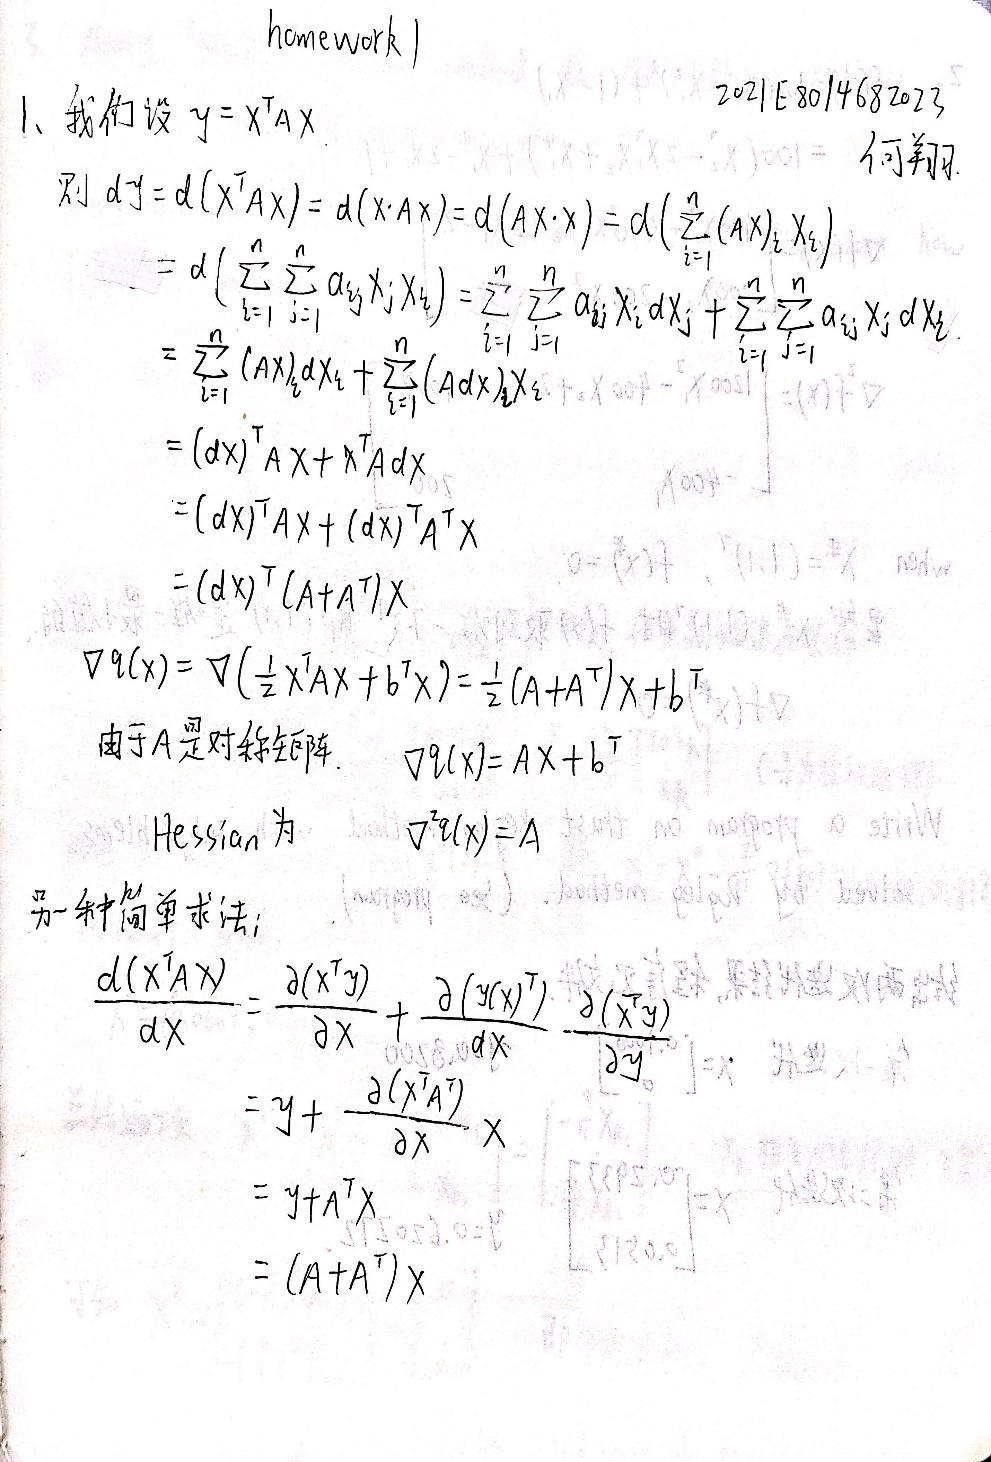 homework 1
2021E8014682023
何翔
1、我们设 y = XᵀAX
则 dy = d(XᵀAX) = d(X·AX) = d(AX·X) = d(∑ᵢ₌₁ⁿ (AX)ᵢ Xᵢ)
= d(∑ᵢ₌₁ⁿ ∑ⱼ₌₁ⁿ aᵢⱼ Xⱼ Xᵢ) = ∑ᵢ₌₁ⁿ ∑ⱼ₌₁ⁿ aᵢⱼ Xᵢ dXⱼ + ∑ᵢ₌₁ⁿ ∑ⱼ₌₁ⁿ aᵢⱼ Xⱼ dXᵢ.
= ∑ᵢ₌₁ⁿ (AX)ᵢ dXᵢ + ∑ᵢ₌₁ⁿ (AdX)ᵢ Xᵢ
= (dX)ᵀAX + XᵀAdX
= (dX)ᵀAX + (dX)ᵀAᵀX
= (dX)ᵀ(A+Aᵀ)X
∇q(x) = ∇(½XᵀAX + bᵀX) = ½(A+Aᵀ)X + bᵀ
由于A是对称矩阵. ∇q(x) = AX + bᵀ
Hessian为 ∇²q(x) = A
另一种简单求法:
d(XᵀAX)/dX = ∂(Xᵀy)/∂X + ∂(y(x)ᵀ)/dX ∂(Xᵀy)/∂y
= y + ∂(XᵀAᵀ)/∂X X
= y + AᵀX
= (A+Aᵀ)X